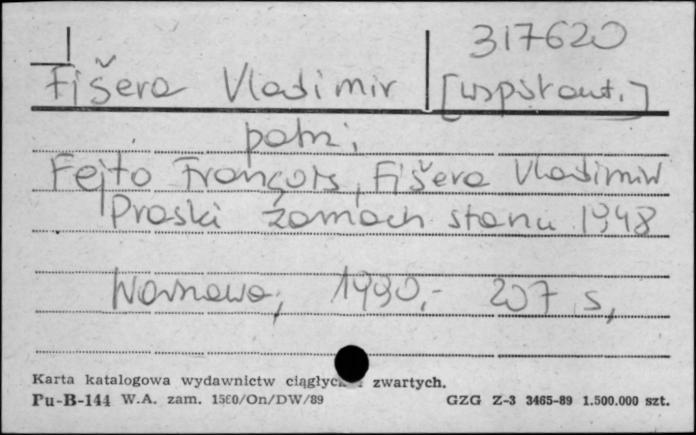 317620
Fišera Vladimir [współaut.]
patrz:
Fejto François, Fišera Vladimir
Praski zamach stanu 1948
Warszawa, 1990,- 207 s,
Karta katalogowa wydawnictw ciągłych zwartych.
Pu-B-144 W.A. zam. 1560/On/DW/89 GZG Z-3 3465-89 1.500.000 szt.